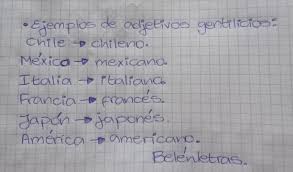 • Ejemplos de adjetivos gentilicios:
Chile → chileno.
México → mexicano.
Italia → italiano.
Francia → francés.
Japón → japonés.
América → americano.
Belénletras.